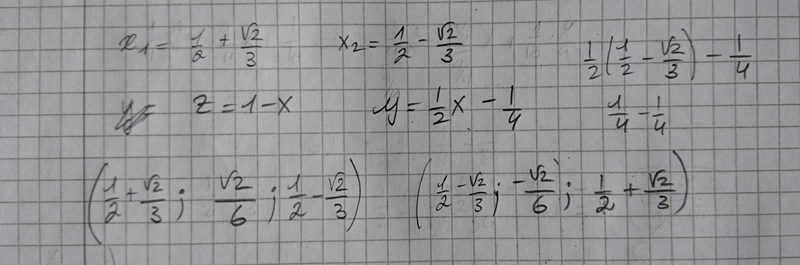 x₁ = 1/2 + √2/3    x₂ = 1/2 - √2/3    1/2(1/2 - √2/3) - 1/4
z = 1 - x    y = 1/2 x - 1/4    1/4 - 1/4
(1/2 + √2/3 ; √2/6 ; 1/2 - √2/3)    (1/2 - √2/3 ; -√2/6 ; 1/2 + √2/3)